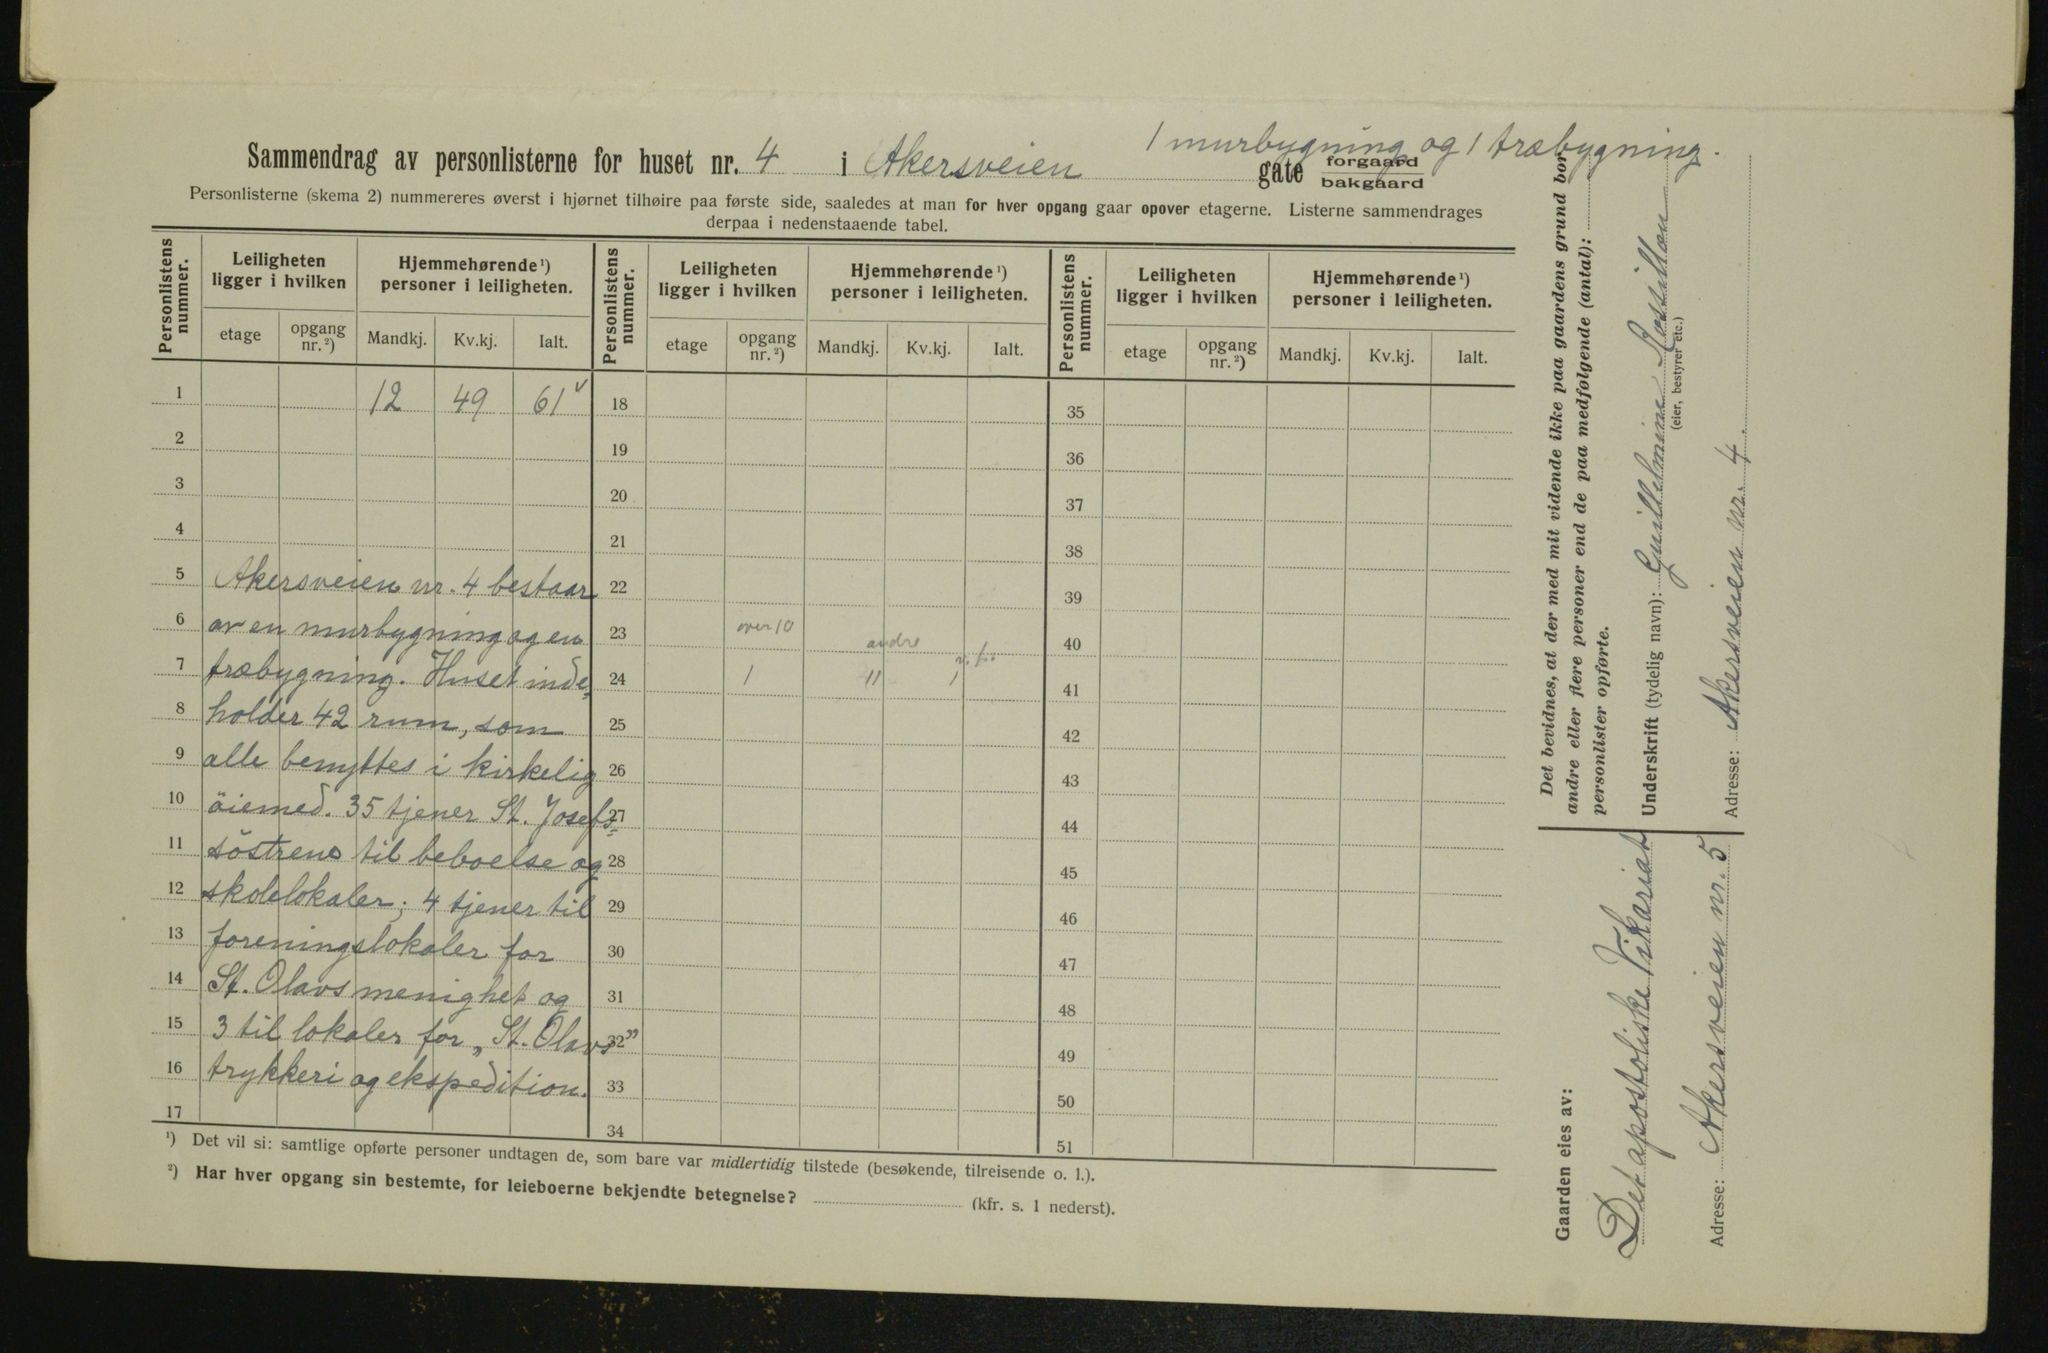 1 murbygning og 1 træbygning.
Sammendrag av personlisterne for huset nr. 4 i Akersveien gate forgaard
bakgaard
Personlisterne (skema 2) nummereres øverst i hjørnet tilhøire paa første side, saaledes at man for hver opgang gaar opover etagerne. Listerne sammendrages
derpaa i nedenstaaende tabel.
Personlistens nummer. Leiligheten ligger i hvilken Hjemmehørende ¹) personer i leiligheten. Personlistens nummer. Leiligheten ligger i hvilken Hjemmehørende ¹) personer i leiligheten. Personlistens nummer. Leiligheten ligger i hvilken Hjemmehørende ¹) personer i leiligheten.
etage opgang nr. ²) Mandkj. Kv.kj. Ialt. etage opgang nr. ²) Mandkj. Kv.kj. Ialt. etage opgang nr. ²) Mandkj. Kv.kj. Ialt.
1 12 49 61 ✓ 18 35
2 19 36
3 20 37
4 21 38
5 Akersveien nr. 4 bestaar 22 39
6 av en murbygning og en 23 over 10 andre 40
7 træbygning. Huset inde= 24 1 11 1 41
8 holder 42 rum, som 25 42
9 alle benyttes i kirkelig 26 43
10 öiemed. 35 tjener St. Josefs= 27 44
11 söstrene til beboelse og 28 45
12 skolelokaler; 4 tjener til 29 46
13 foreningslokaler for 30 47
14 St. Olavs menighet og 31 48
15 3 til lokaler for „St. Olavs” 32 49
16 trykkeri og ekspedition. 33 50
17 34 51
¹) Det vil si: samtlige opførte personer undtagen de, som bare var midlertidig tilstede (besøkende, tilreisende o. l.).
²) Har hver opgang sin bestemte, for leieboerne bekjendte betegnelse? (kfr. s. 1 nederst).
Det bevidnes, at der med mit vidende ikke paa gaardens grund bor
andre eller flere personer end de paa medfølgende (antal):
personlister opførte.
Underskrift (tydelig navn): Guillelmine
(eier, bestyrer etc.)
Adresse: Akersveien nr. 4.
Gaarden eies av:
Det apostoliske Vikariat
Adresse: Akersveien nr. 5